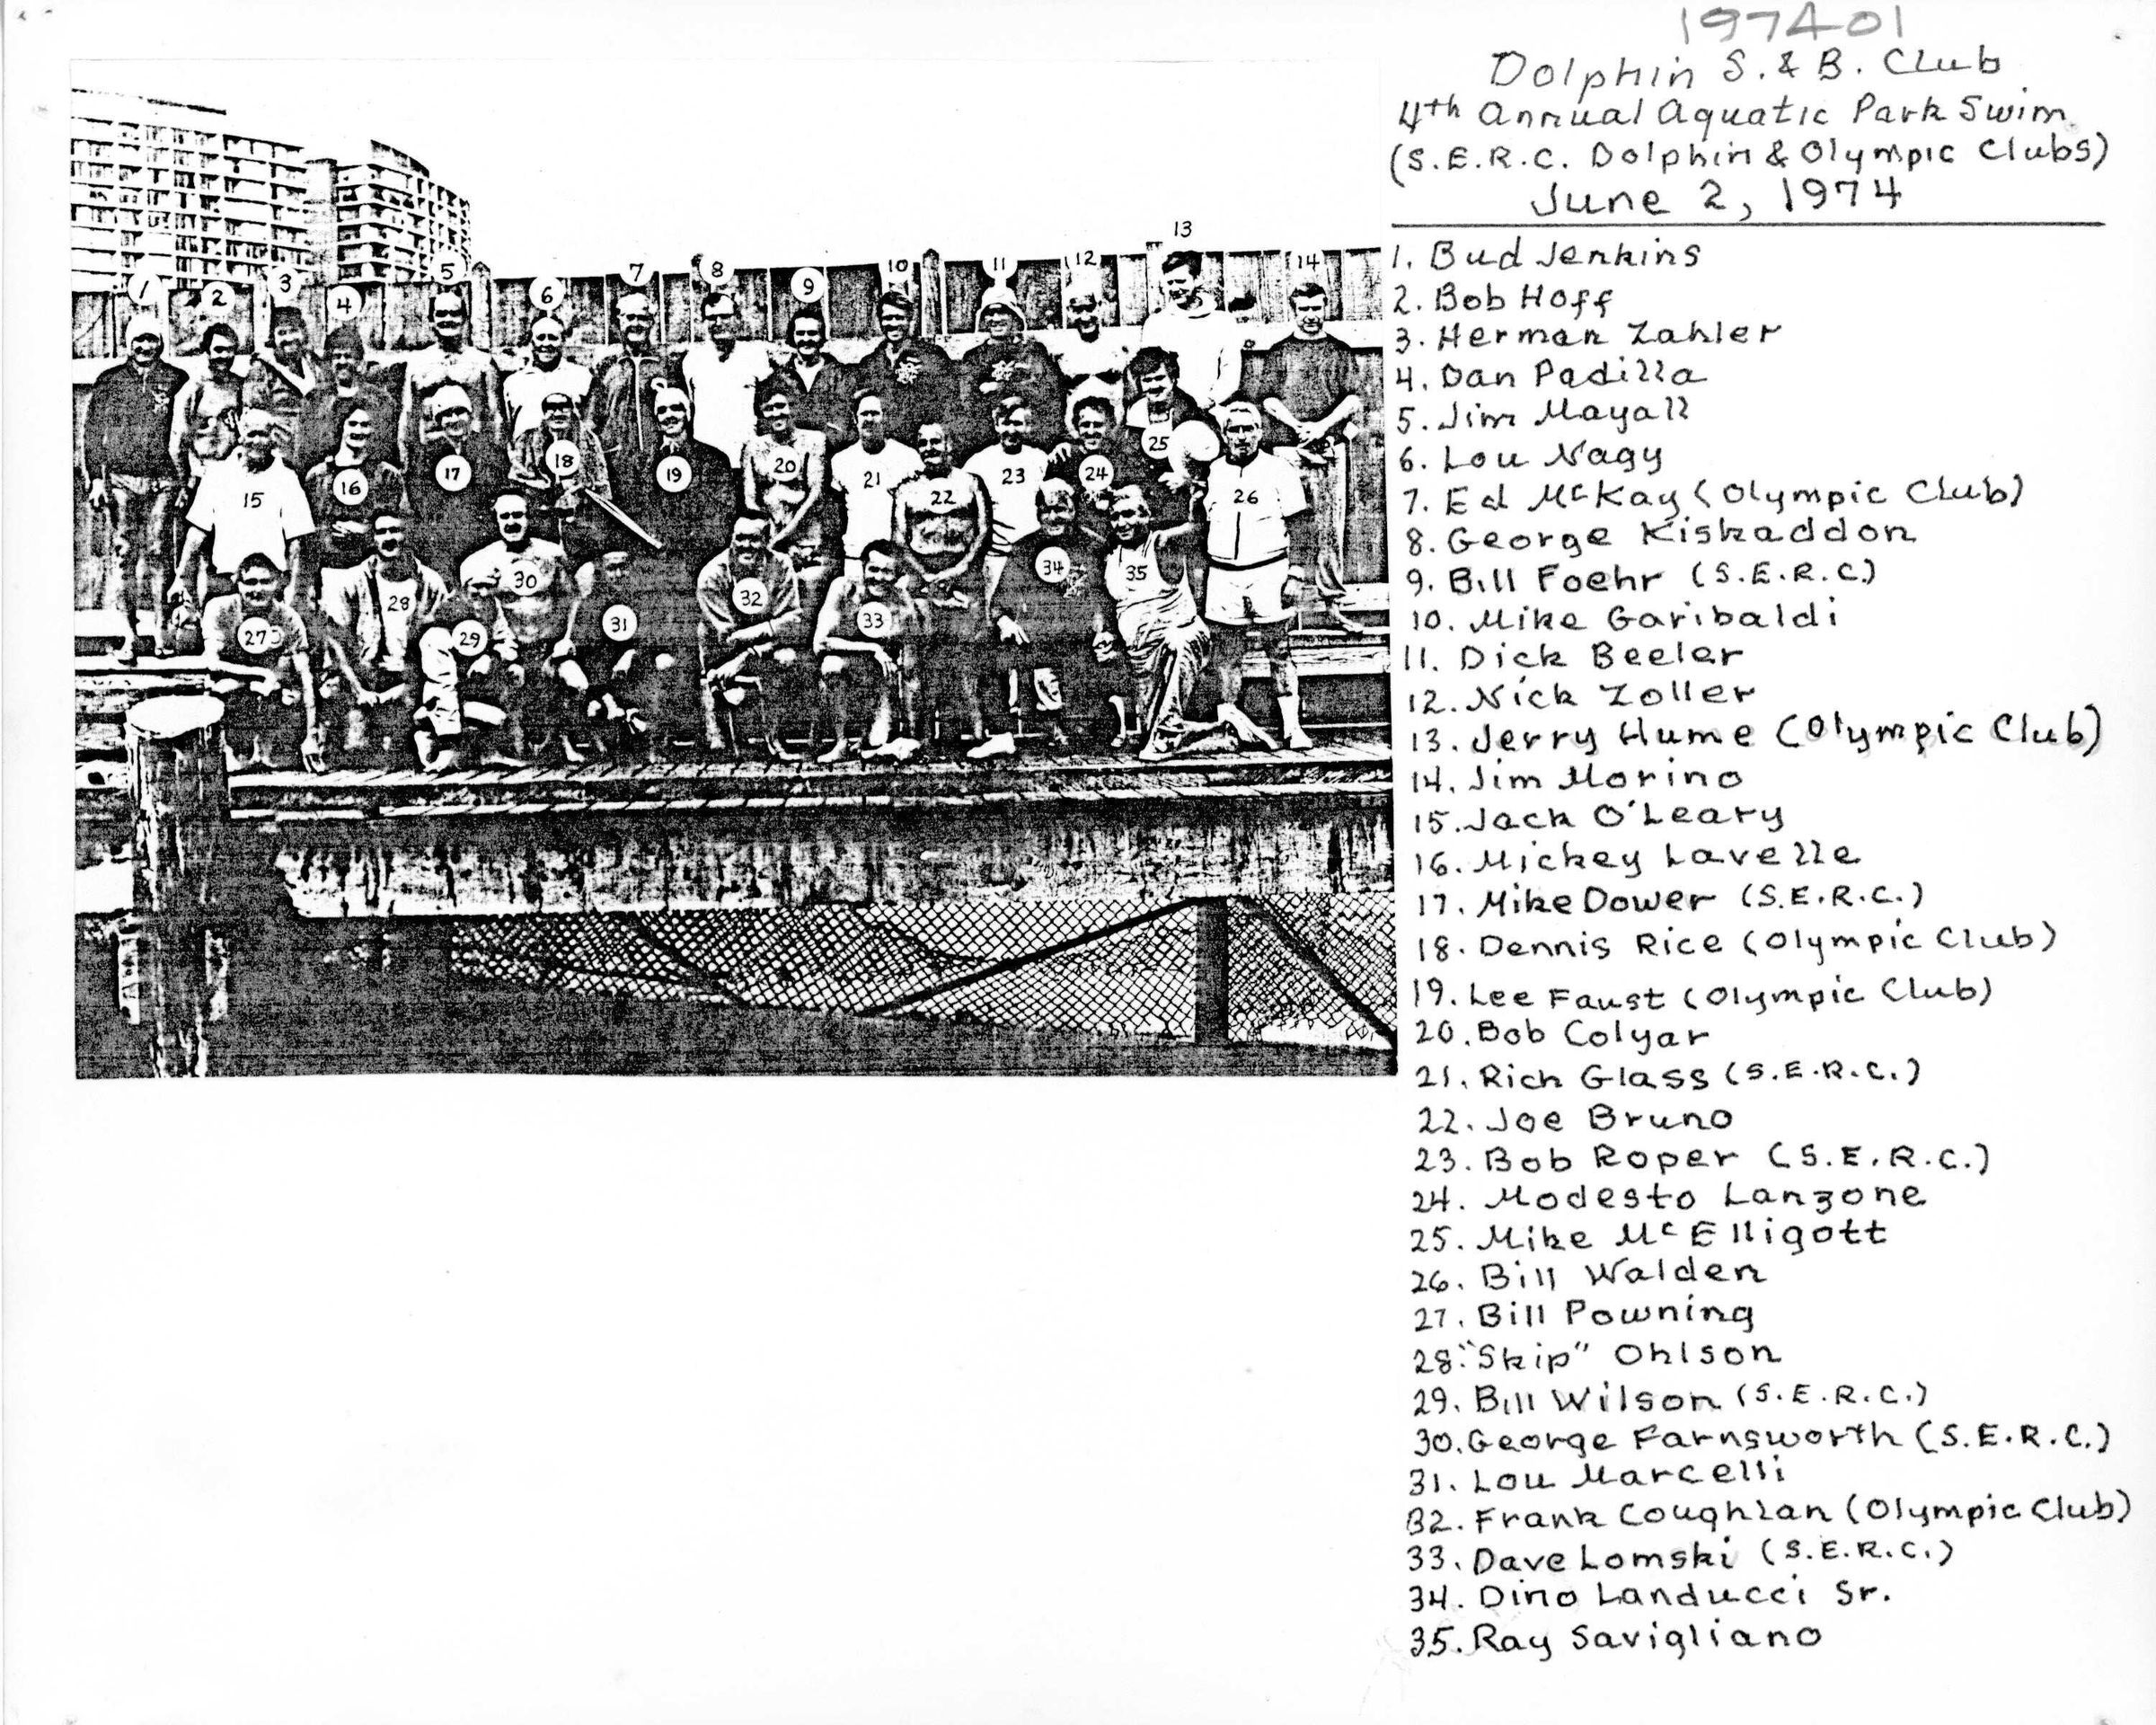 197401
Dolphin S. & B. Club
4th Annual Aquatic Park Swim
(S.E.R.C. Dolphin & Olympic Clubs)
June 2, 1974
1. Bud Jenkins
2. Bob Hoff
3. Herman Zahler
4. Dan Padilla
5. Jim Mayall
6. Lou Nagy
7. Ed McKay (Olympic Club)
8. George Kiskaddon
9. Bill Foehr (S.E.R.C.)
10. Mike Garibaldi
11. Dick Beeler
12. Nick Zoller
13. Jerry Hume (Olympic Club)
14. Jim Morino
15. Jack O'Leary
16. Mickey Lavelle
17. Mike Dower (S.E.R.C.)
18. Dennis Rice (Olympic Club)
19. Lee Faust (Olympic Club)
20. Bob Colyar
21. Rich Glass (S.E.R.C.)
22. Joe Bruno
23. Bob Roper (S.E.R.C.)
24. Modesto Lanzone
25. Mike McElligott
26. Bill Walden
27. Bill Powning
28. "Skip" Ohlson
29. Bill Wilson (S.E.R.C.)
30. George Farnsworth (S.E.R.C.)
31. Lou Marcelli
32. Frank Coughlan (Olympic Club)
33. Dave Lomski (S.E.R.C.)
34. Dino Landucci Sr.
35. Ray Savigliano
1 2 3 4 5 6 7 8 9 10 11 12 13 14
15 16 17 18 19 20 21 22 23 24 25 26
27 28 29 30 31 32 33 34 35